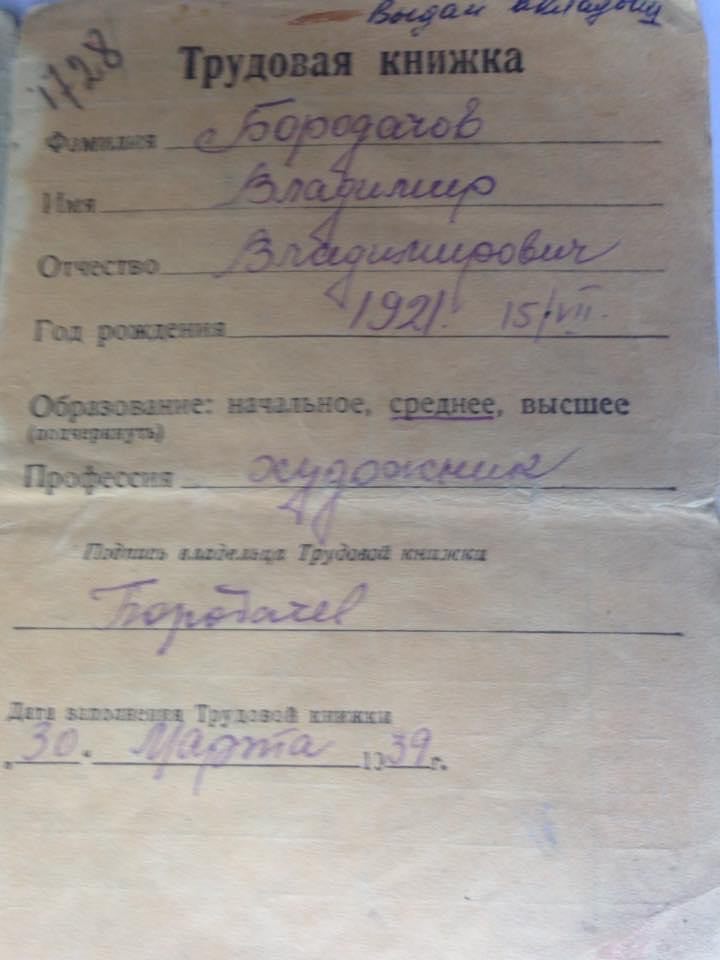 Выдан вкладыш
1728
Трудовая книжка
Фамилия Бородачов
Имя Владимир
Отчество Владимирович
Год рождения 1921. 15/VII.
Образование: начальное, среднее, высшее
(подчеркнуть)
Профессия художник
Подпись владельца Трудовой книжки
Бородачев
Дата заполнения Трудовой книжки
„30" Марта 1939 г.